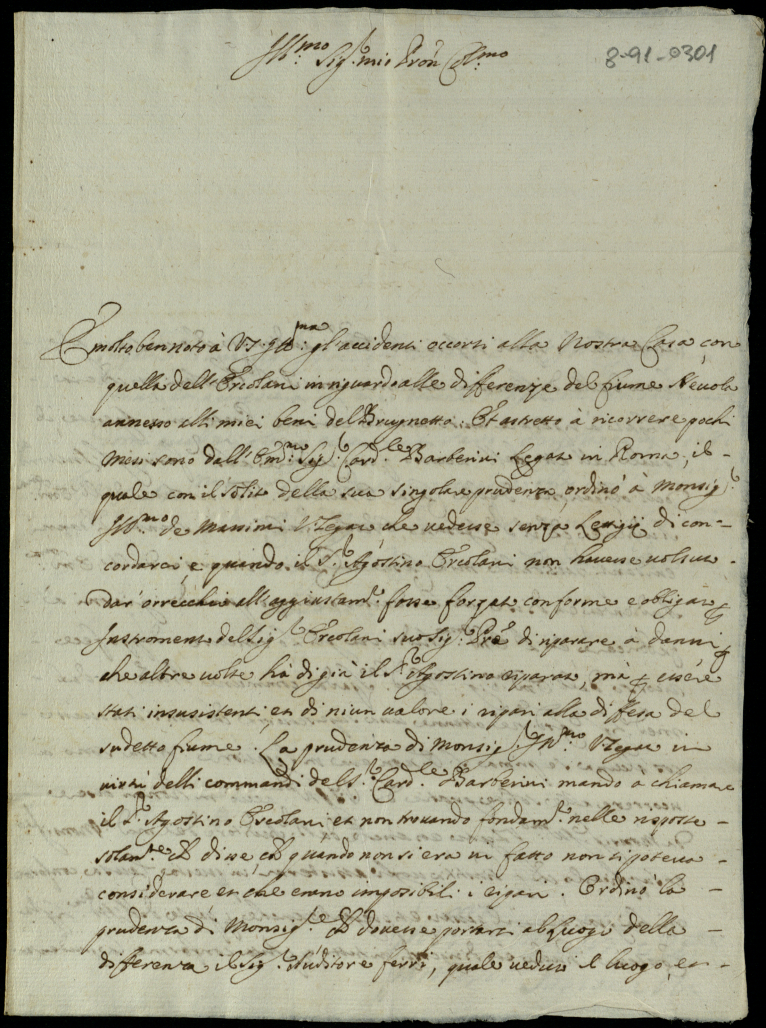 8-91-0301
Ill:mo Sig:r mio Pron Col:mo
È molto ben noto à V.S. Ill:ma gl'accidenti occorsi alla Nostra Casa con
quella dell'Ercolani in riguardo alle differenze del fiume Nevola
annesso alli miei beni del Brugnetto: Et astretto à ricorrere pochi
mesi sono dall'Em:mo Sig:r Card:le Barberini Legato in Roma, il-
quale con il solito della sua singolare prudenza, ordinò à Monsig:r
Ill:mo de Massimi V.Legato che vedesse senza Letigij di con-
cordarci, e quando il S:r Agostino Ercolani non havesse volsuto
dar' orrecchie all'aggiustam:to fosse forzato conforme e obligato p
Instromento del Sig:r Ercolani suo Sig:r Pre di riparare à danni
che altre volte hà di già il S:r Agostino riparato, mà p essere
stati insusistenti et di niun valore i ripari alla diffesa del
sudetto fiume. La prudenza di Monsig:r Ill:mo V.Legato in
virtù delli commandi del S:r Card:le Barberini mando a chiamare
il S:r Agostino Ercolani et non trovando fondam:to nelle risposte-
solam:te disse quando non si era in fatto non si poteva-
considerare et che erano impossibili i ripari. Ordinò la-
prudenza di Monsig:re dovesse portarsi al luogo della-
differenza il Sig:r Auditore ferri, quale veduto il luogo, et-